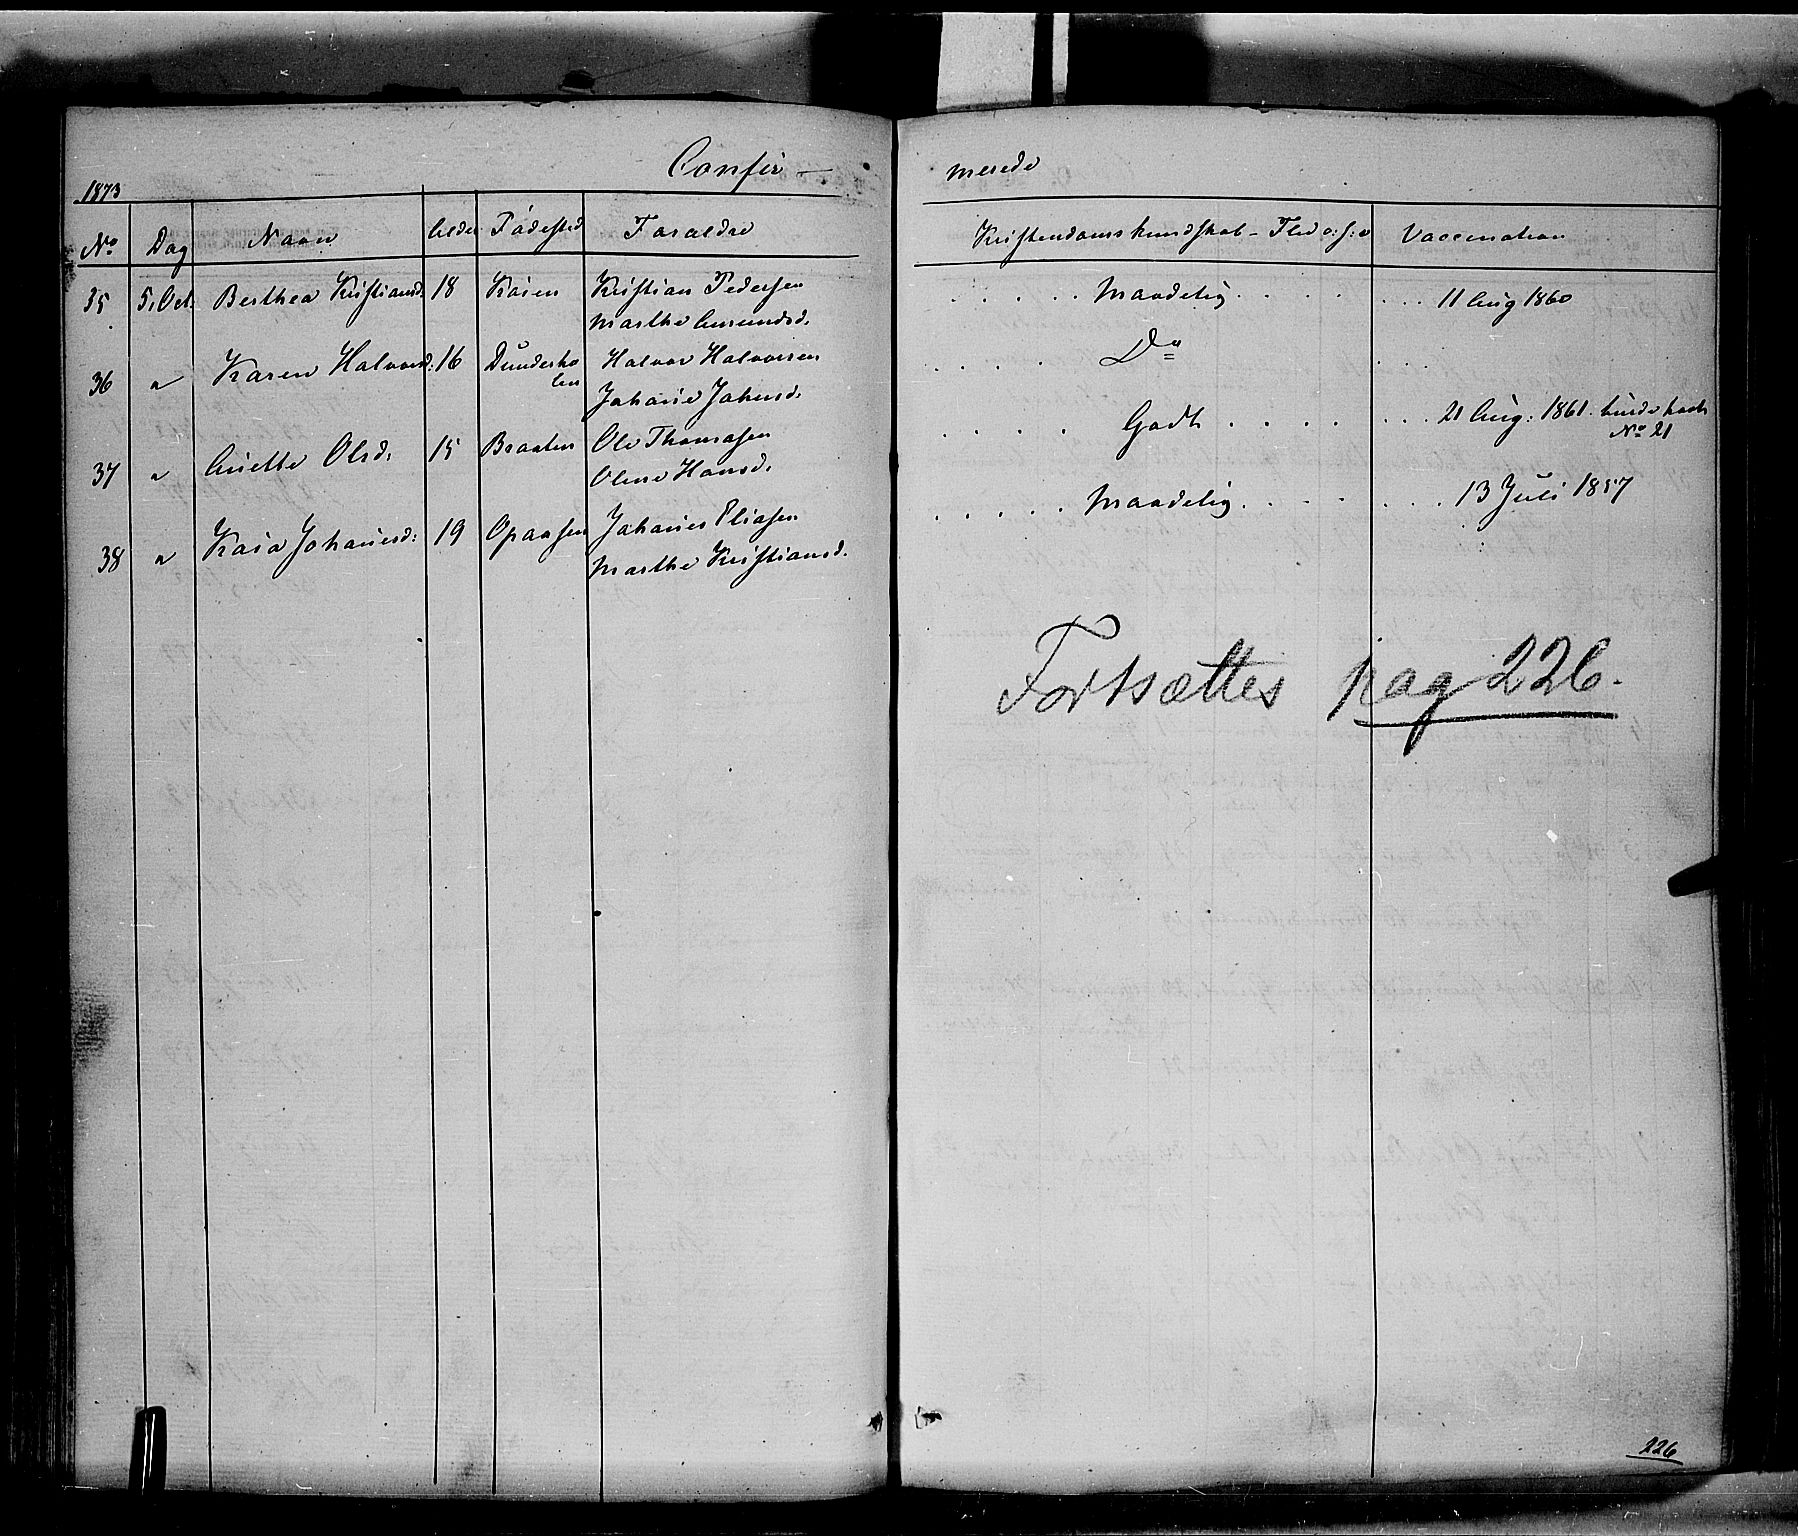 Confir-
merede
1873
No Dag Navn Alder Fødested Foraldre Kristendomskundskab - Flid o: s: v Vaccination
35 5. Oct. Berthea Kristiansd: 18 Kristian Pedersen . . . . . Maadelig . . . . . . . . 11 Aug 1860
Marthe Amundsd.
36 " Karen Halvorsd: 16 Dunderho Halvor Halvorsen . . . . . Do . . .
len Johane Johansd.
37 " Anette Olsd: 15 Braaten Ole Thomasen . . . . . Godt . . . . . . . . 21 Aug: 1861.
No 21
Oline Hansd.
38 " Kaia Johanesd: 19 Opaasen Johanes Eliasen . . . . . Maadelig . . . . . . . 13 Juli 1857
Marthe Kristiansd.
Fortsættes pag 226.
226